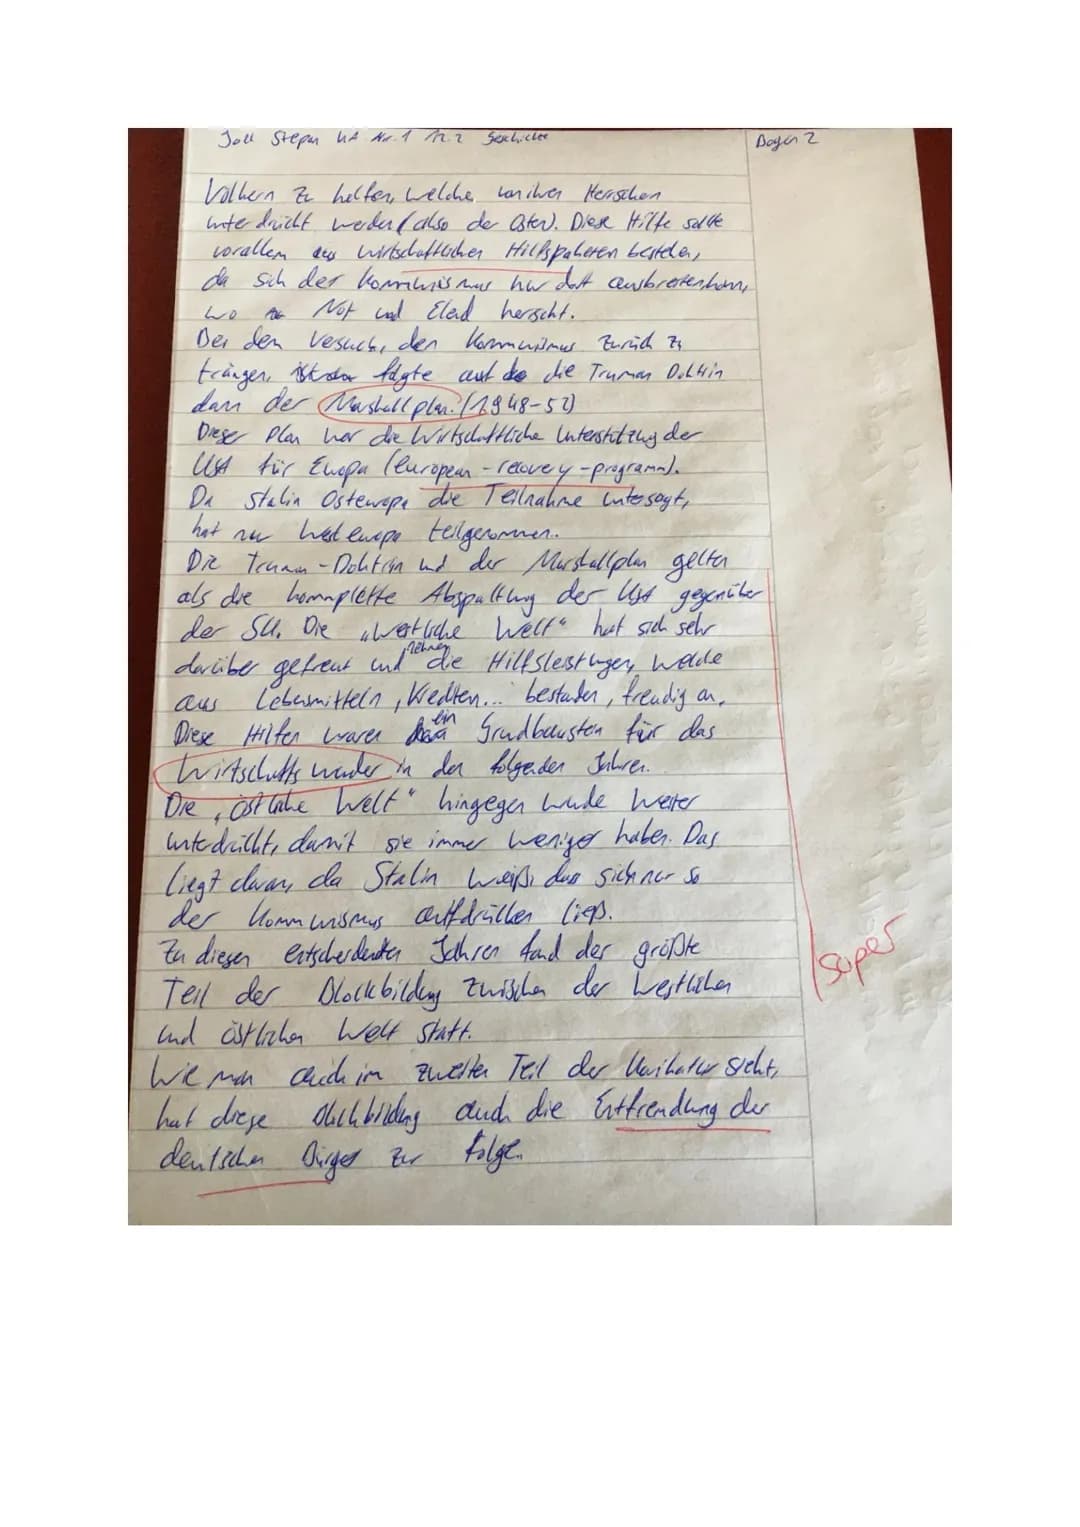 Stepan KA Nr. 1 12.2 Geschichte
Bogen 2
Völkern zu helfen, welche von ihren Herrschern
unterdrückt werden (also der Osten). Diese Hilfe sollte
vorallem aus wirtschaftlichen Hilfspaketen bestehen,
da sich der Kommunismus nur dort ausbreiten kann,
wo Not und Elend herrscht.
Bei dem Versuch, den Kommunismus zurück zu
trängen, folgte auf die Truman Doktrin
dann der Marshallplan. (1948-52)
Dieser Plan war die wirtschaftliche Unterstützung der
USA für Europa (european-recovery-programm).
Da Stalin Osteuropa die Teilnahme untersagt,
hat nur Westeuropa teilgenommen.
Die Truman-Doktrin und der Marshallplan gelten
als die kommplette Abspaltung der USA gegenüber
der SU. Die „westliche Welt" hat sich sehr
darüber gefreut und nehmen die Hilfsleistungen, welche
aus Lebensmitteln, Krediten... bestanden, freudig an.
Diese Hilfen waren ein Grundbaustein für das
Wirtschaftswunder in den folgenden Jahren.
Die „östliche Welt" hingegen wurde weiter
unterdrückt, damit sie immer weniger haben. Das
liegt daran, da Stalin weiß, dass sich nur so
der Kommunismus aufdrücken ließ.
Zu diesen entscheidenden Jahren fand der größte
Teil der Blockbildung zwischen der westlichen
und östlichen Welt statt.
Wie man auch im zweiten Teil der Karikatur sieht,
hat diese Blockbildung auch die Entfremdung der
deutschen Bürger zur Folge.
super